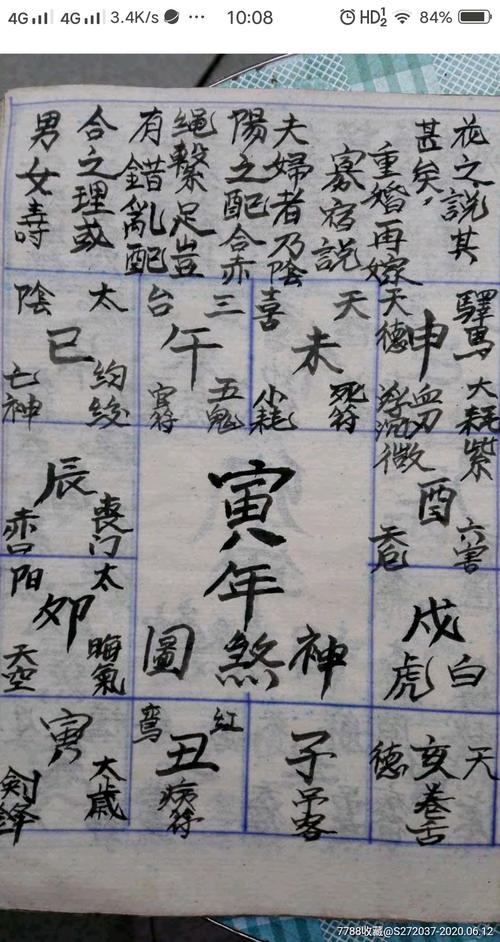 4G 4G 3.4K/s ··· 10:08 HD 1 2 84%
花之說其
甚矣，
重婚再嫁
寡宿說
夫婦者乃陰
陽之配合赤
繩繫足豈
有錯亂配
合之理或
男女壽
驛馬 申 天德
大耗 紫微 血刃 浮沉
天喜 未
死符 小耗
三台 午
五鬼 官符
太陰 巳
絞 亡神
辰 喪門
酉 六害 天
寅年
神煞圖
太陽 卯
晦氣 天空
戌
白虎
寅 太歲
劍鋒
紅鸞 丑
病符
子
吊客
天德 亥
卷舌
7788收藏@S272037-2020.06.12